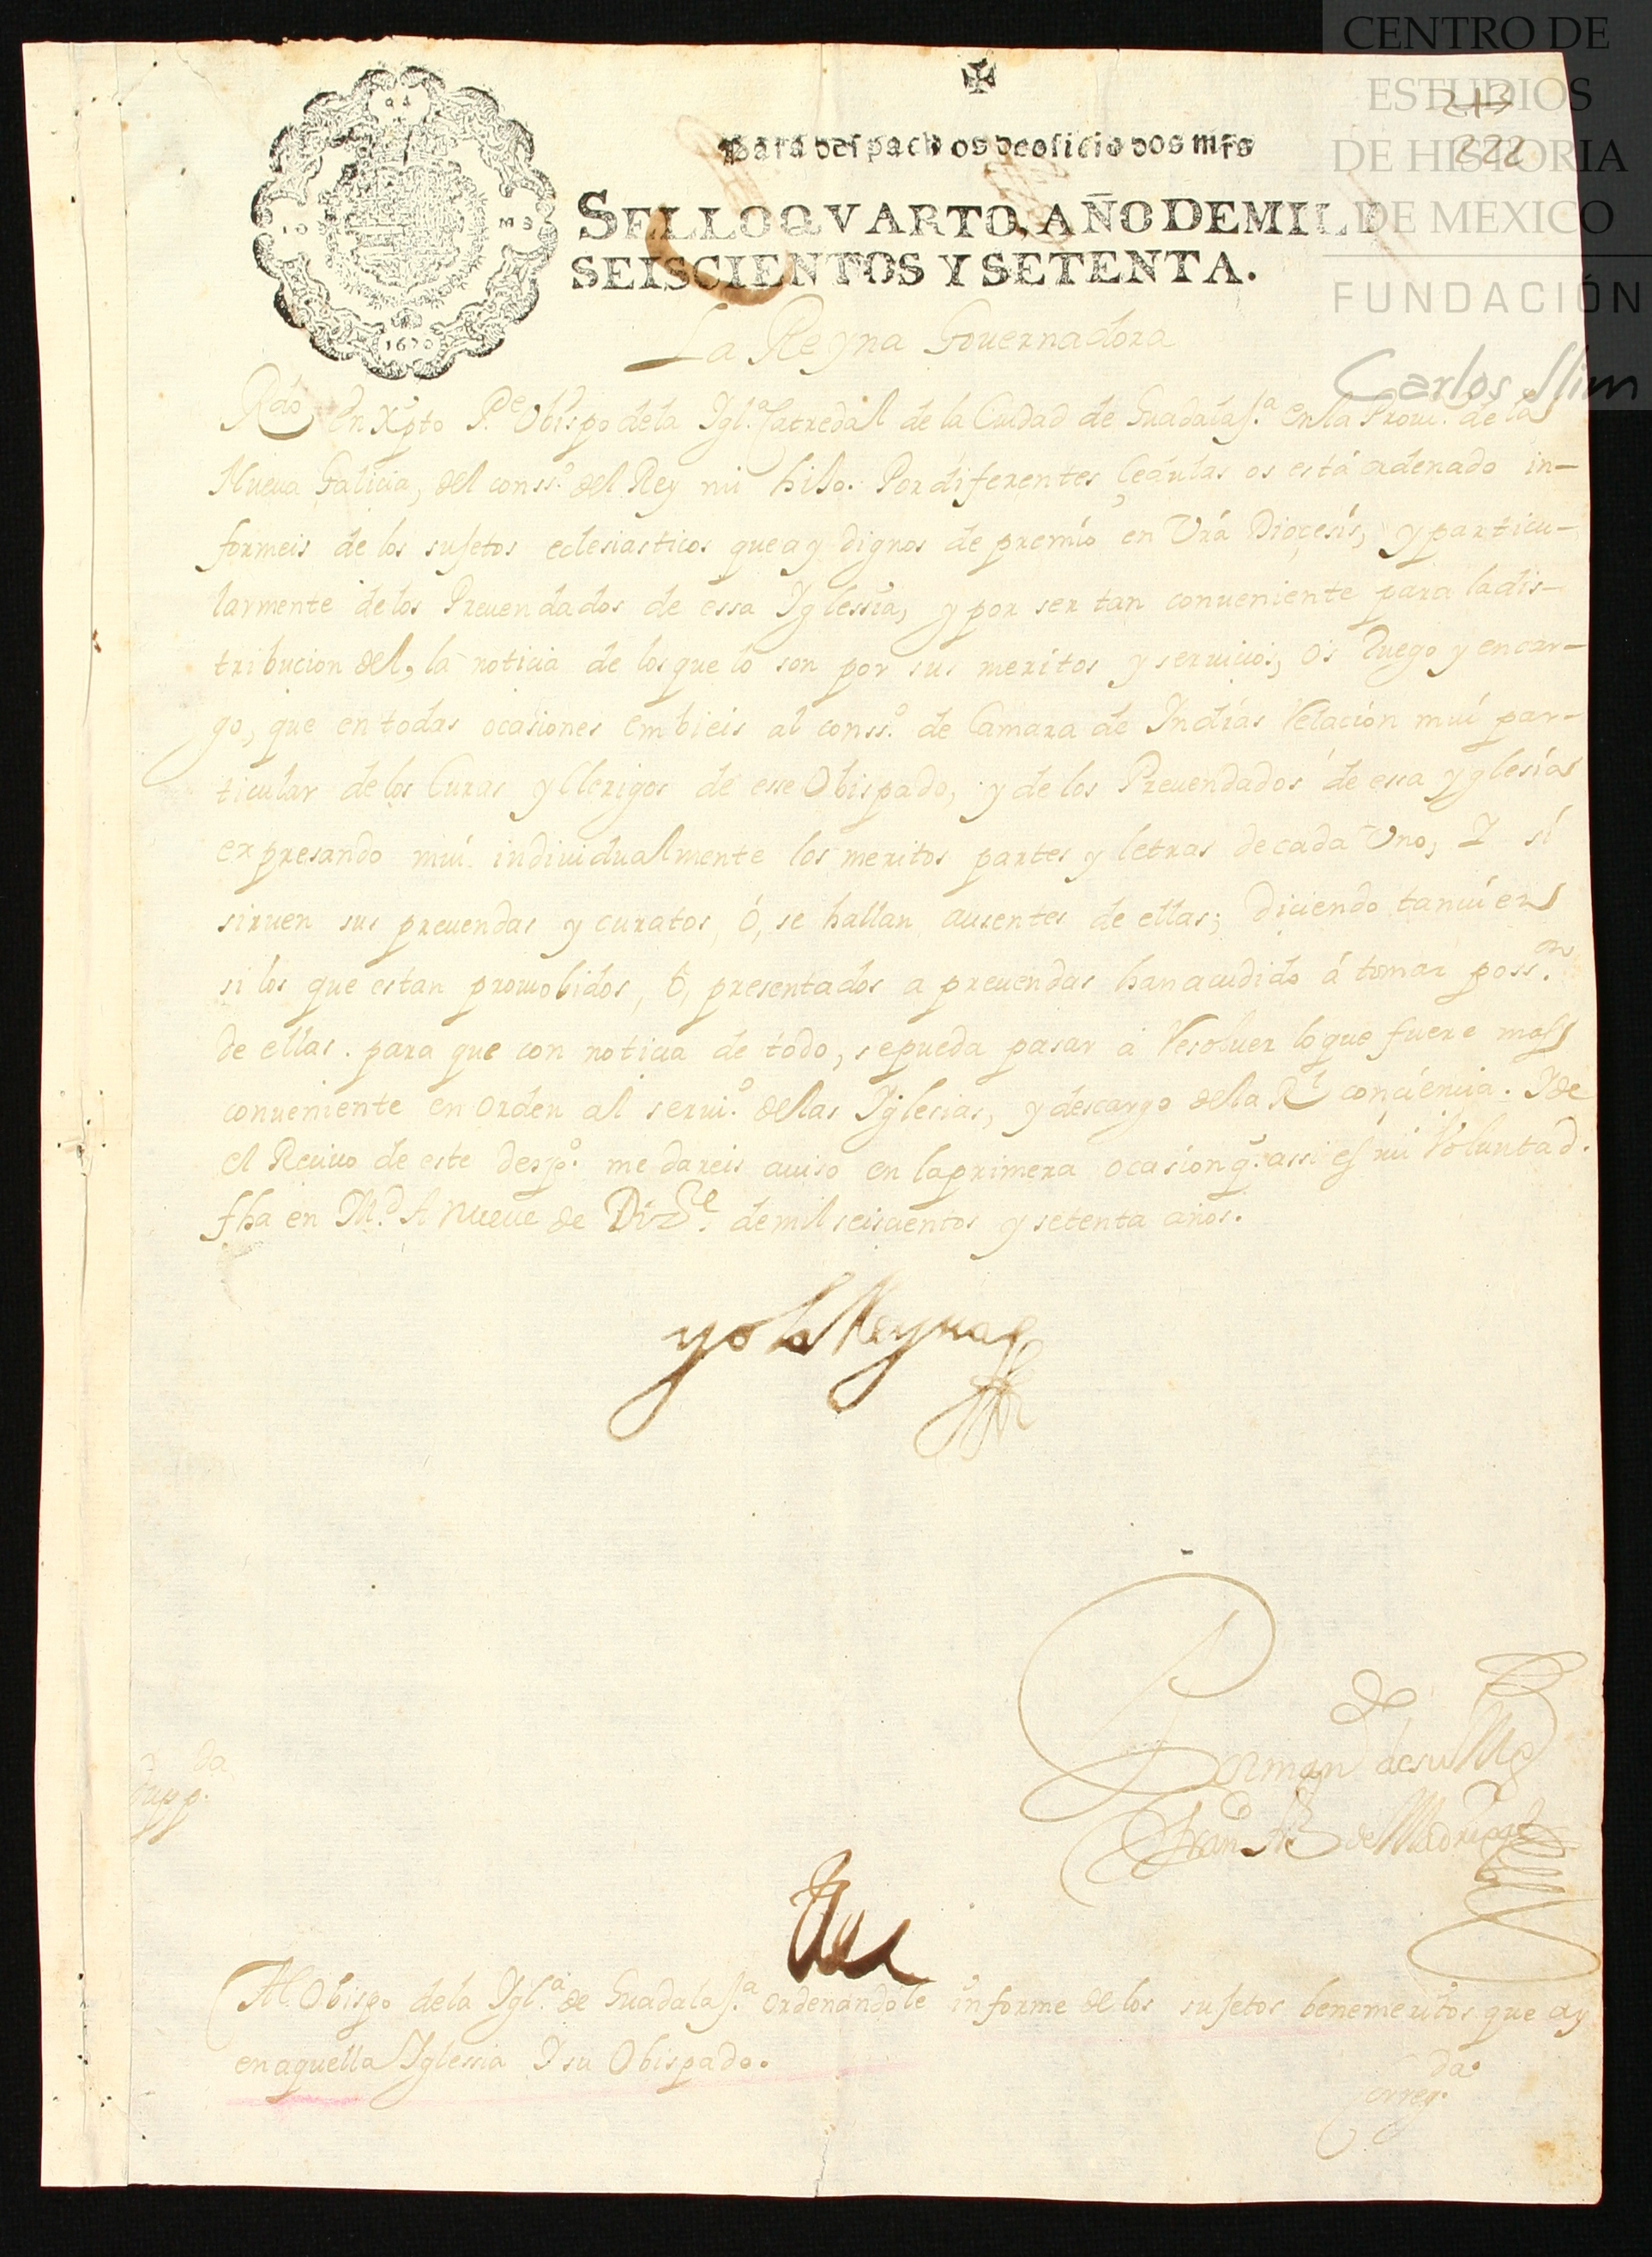 CENTRO DE
ESTUDIOS
DE HISTORIA
DE MÉXICO
FUNDACIÓN
Carlos Slim
222
Para despachos de oficio dos mrs
SELLO QVARTO, AÑO DE MIL
SEISCIENTOS Y SETENTA.
1670
La Reyna Gouernadora
Rdo en Xpto Pe. Obispo de la Igl.ª Catredal de la Ciudad de Guadalaj.ª en la Prou.ª de la
Nueua Galicia, del conss.º del Rey mi hijo. Por diferentes Çedulas os está ordenado in-
formeis de los sujetos eclesiasticos que ay dignos de premio en Vrá Dioçesis, y particu-
larmente de los Preuendados de essa Iglessia, y por ser tan conueniente para la dis-
tribucion del, la noticia de los que lo son por sus meritos y seruicios, os Ruego y encar-
go, que en todas ocasiones embieis al conss.º de Camara de Indias Relación mui par-
ticular de los Curas y Clerigos de esse Obispado, y de los Preuendados de essa yglesia
expresando mui indiuidualmente los meritos partes y letras de cada Uno, I si
siruen sus preuendas y curatos, ó, se hallan ausentes de ellas; diciendo tanuien
si los que estan promobidos, ó, presentados a preuendas han acudido á tomar poss.on
de ellas. para que con noticia de todo, se pueda pasar a Resoluer lo que fuere mas
conueniente en orden al serui.º de las Iglesias, y descargo de la Rl conçiencia. I de
el Reciuo de este desp.º me dareis auiso en la primera ocasion q. assi es mi Voluntad.
fha en M.d A Nueue de Diz.e de mil seiscientos y setenta años.
yo la Reyna
Por man.do de su Mg.d
Fran.co Frz de Madrigal
dupp.da
Al Obispo de la Igl.ª de Guadalaj.ª ordenandole informe de los sujetos benemeritos que ay
en aquella Iglessia I su Obispado.
Correg.da